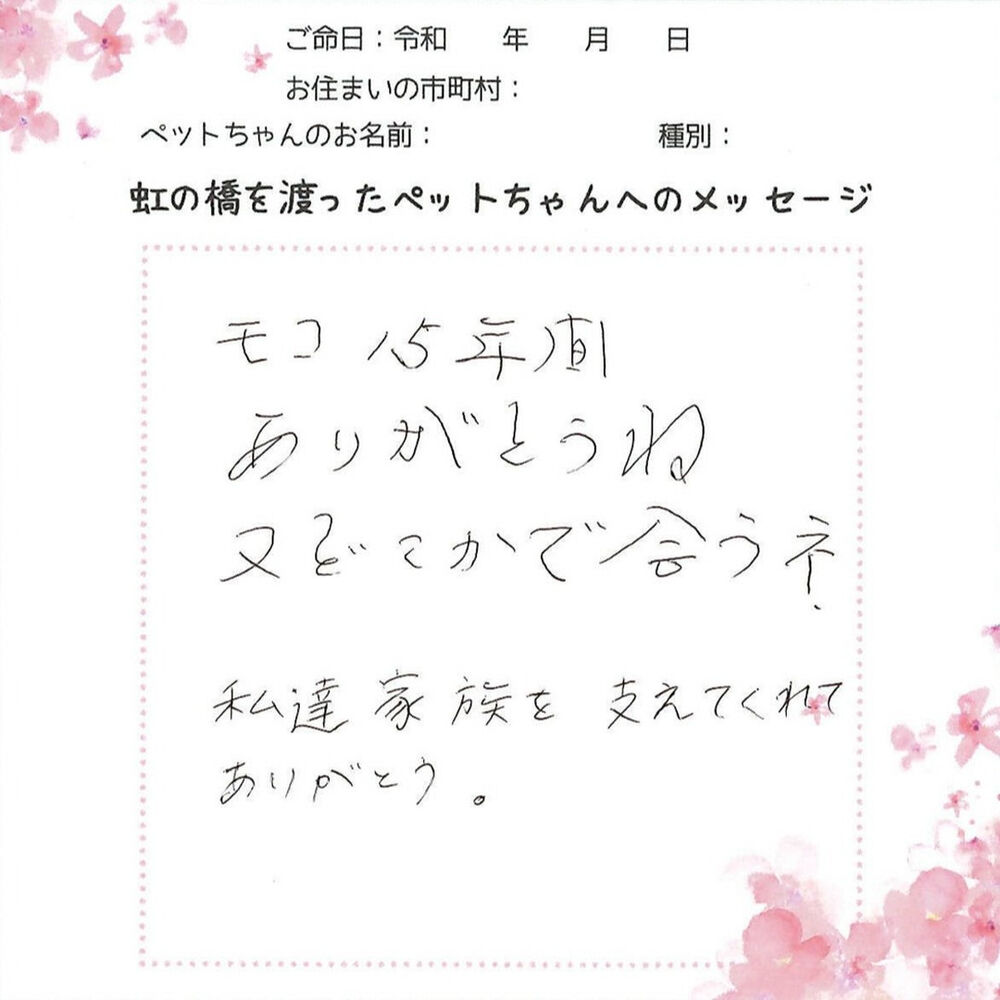 ご命日：令和　　年　　月　　日
お住まいの市町村：
ペットちゃんのお名前：　　　　　　　　種別：
虹の橋を渡ったペットちゃんへのメッセージ
モコ 15年間
ありがとうね
又どこかで会うネ.
私達家族を 支えてくれて
ありがとう。